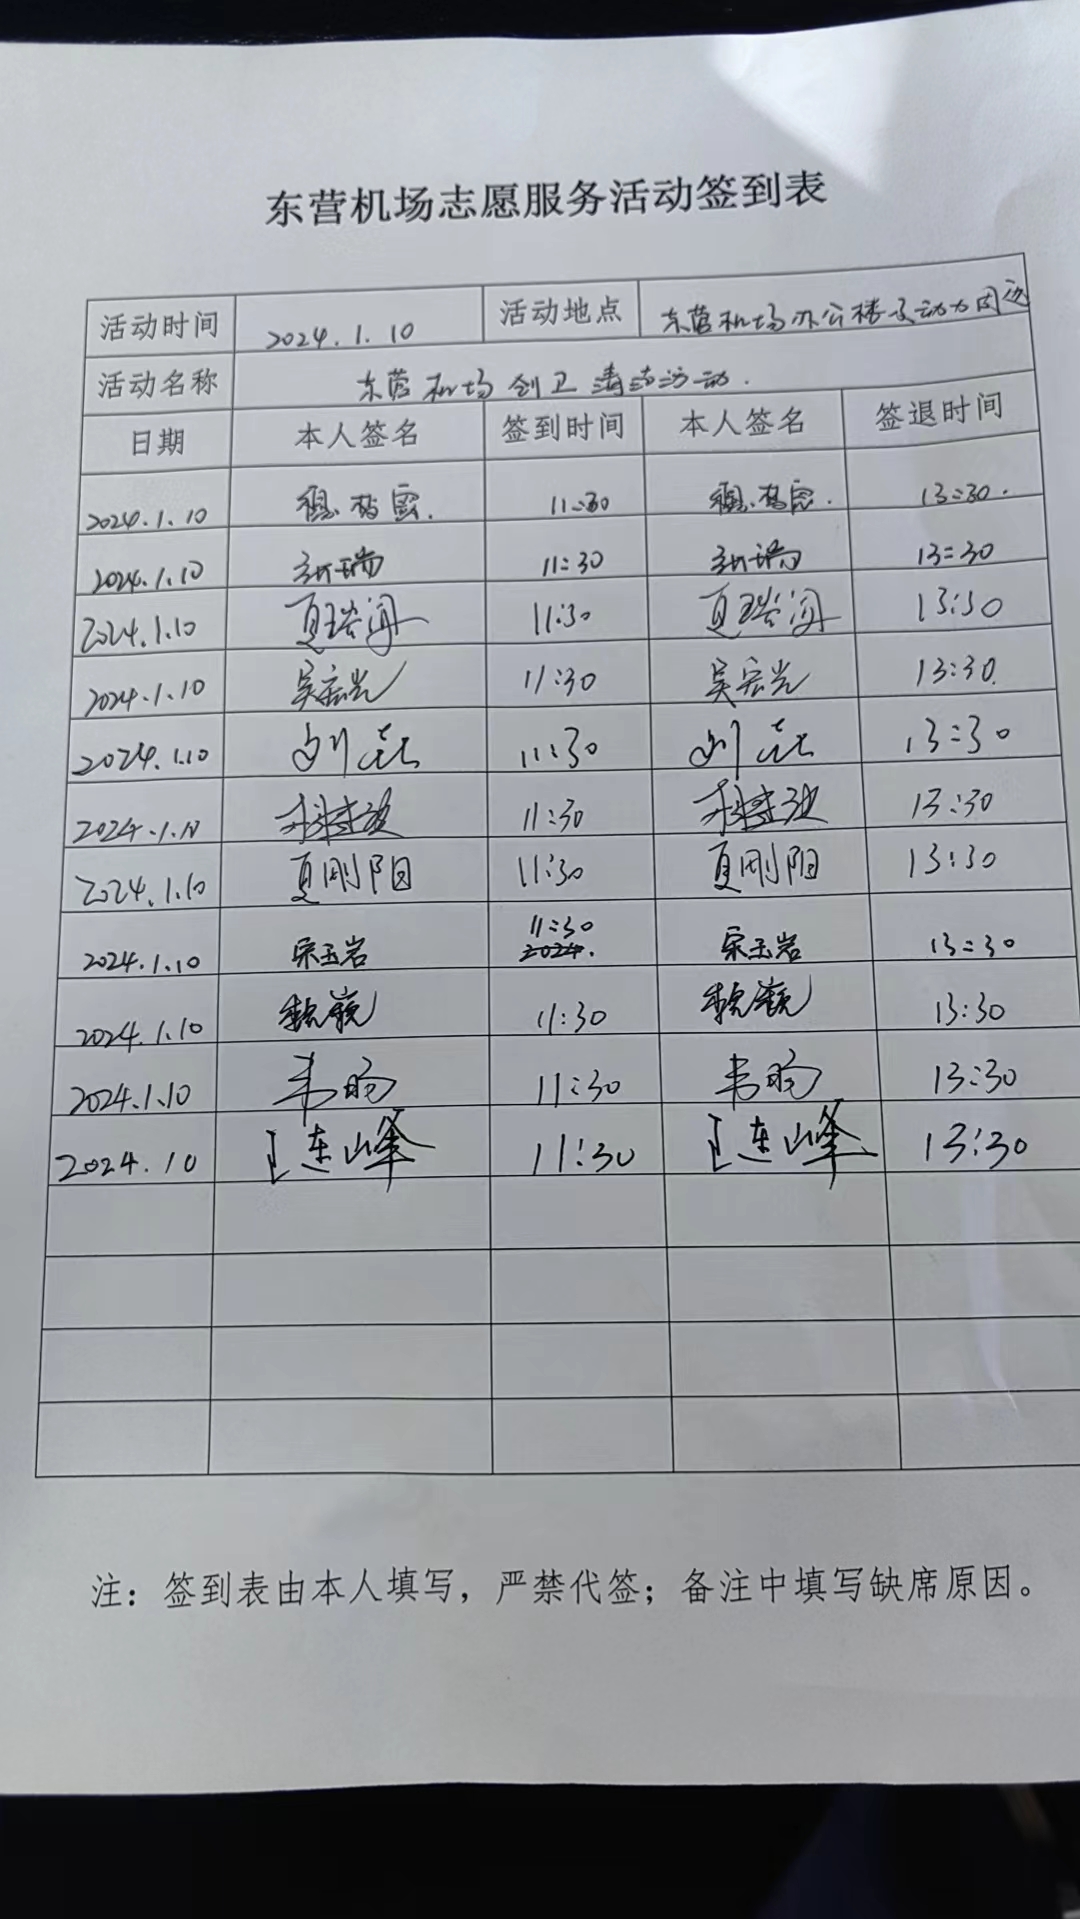 东营机场志愿服务活动签到表
活动时间 2024.1.10 活动地点 东营机场办公楼及动力周边
活动名称 东营机场创卫清洁活动.
日期 本人签名 签到时间 本人签名 签退时间
2024.1.10 11:30 13:30.
2024.1.10 11:30 13:30
2024.1.10 11:30 13:30
2024.1.10 吴宏光 11:30 吴宏光 13:30.
2024.1.10 11:30 13:30
2024.1.10 11:30 13:30
2024.1.10 夏刚阳 11:30 夏刚阳 13:30
2024.1.10 宋玉岩 11:30 2024. 宋玉岩 13:30
2024.1.10 11:30 13:30
2024.1.10 韦昀 11:30 韦昀 13:30
2024.10 王连峰 11:30 王连峰 13:30
注：签到表由本人填写，严禁代签；备注中填写缺席原因。